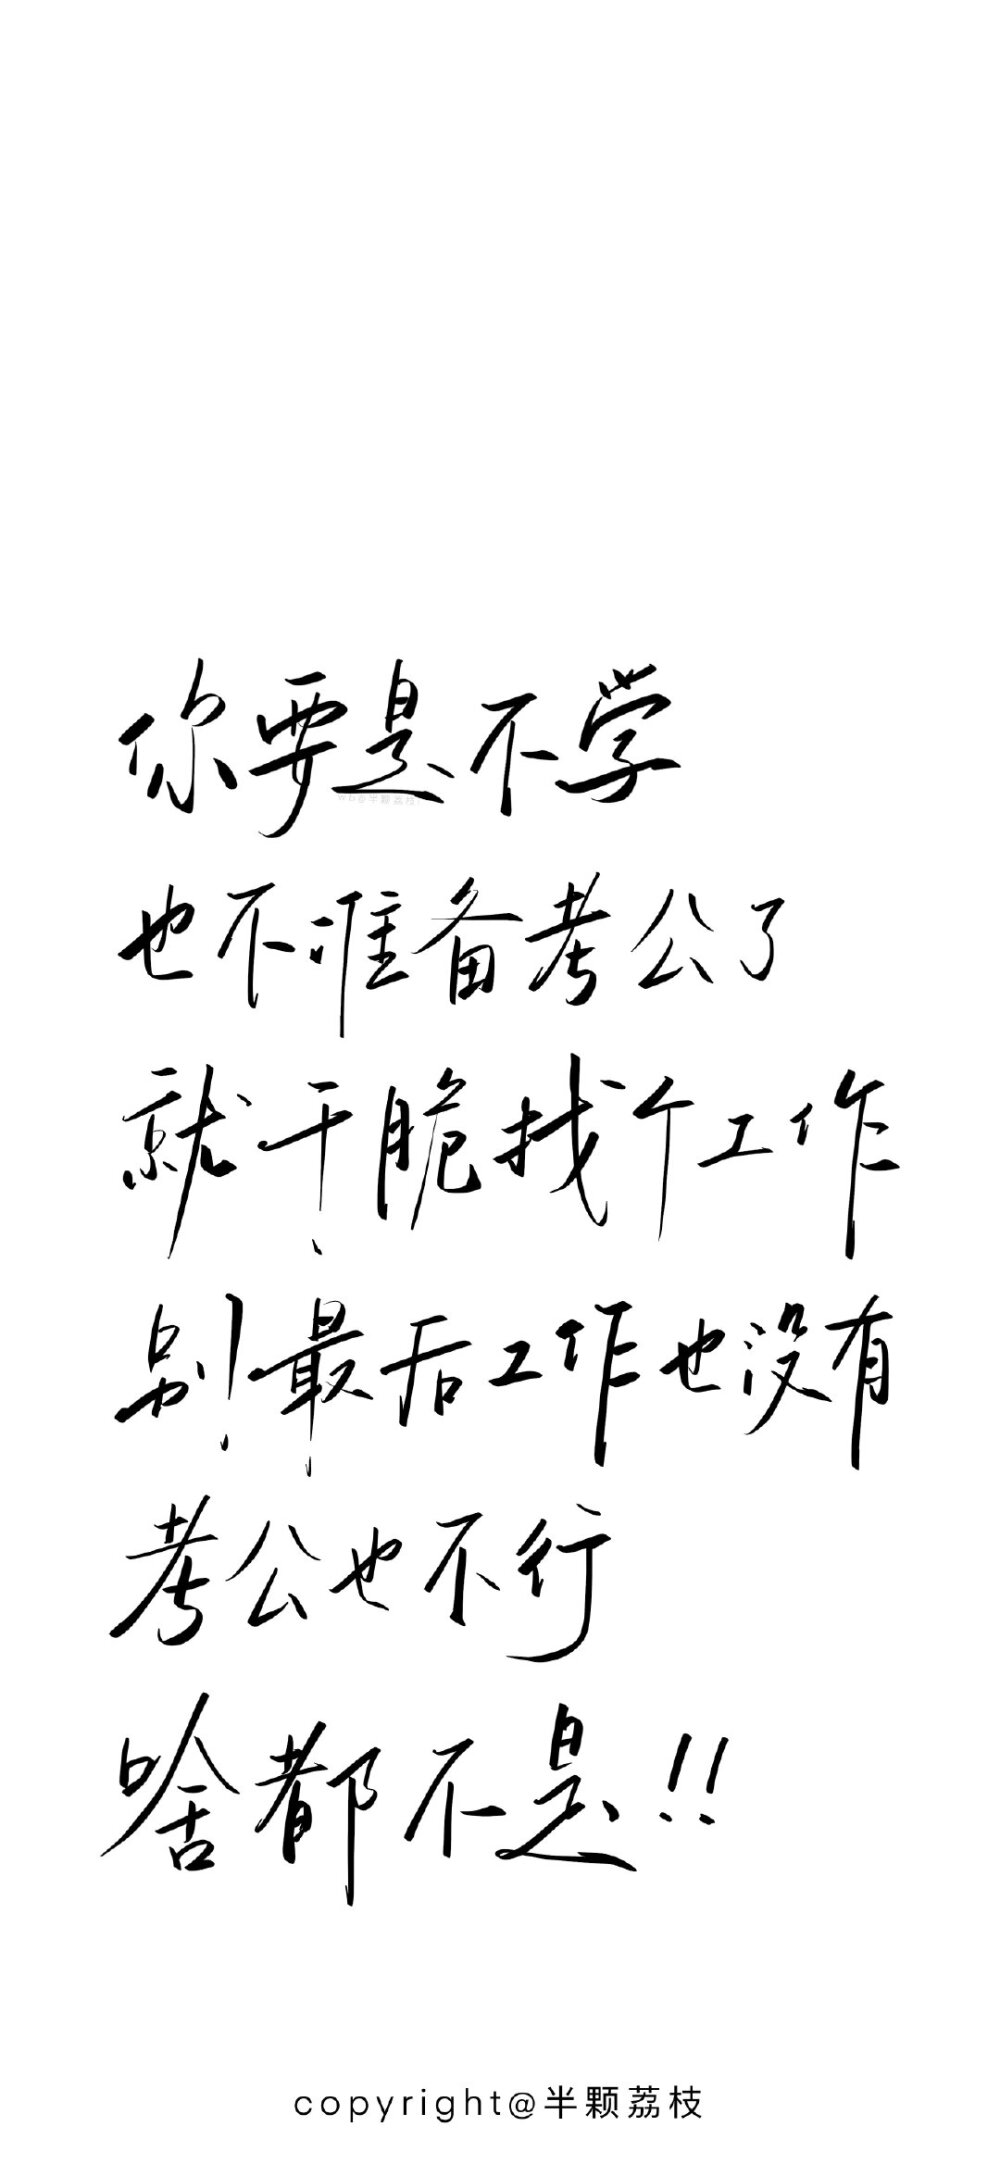 你要是不学
wb@半颗荔枝
也不准备考公了
就干脆找个工作
别!最后工作也没有
考公也不行
啥都不是!!
copyright@半颗荔枝